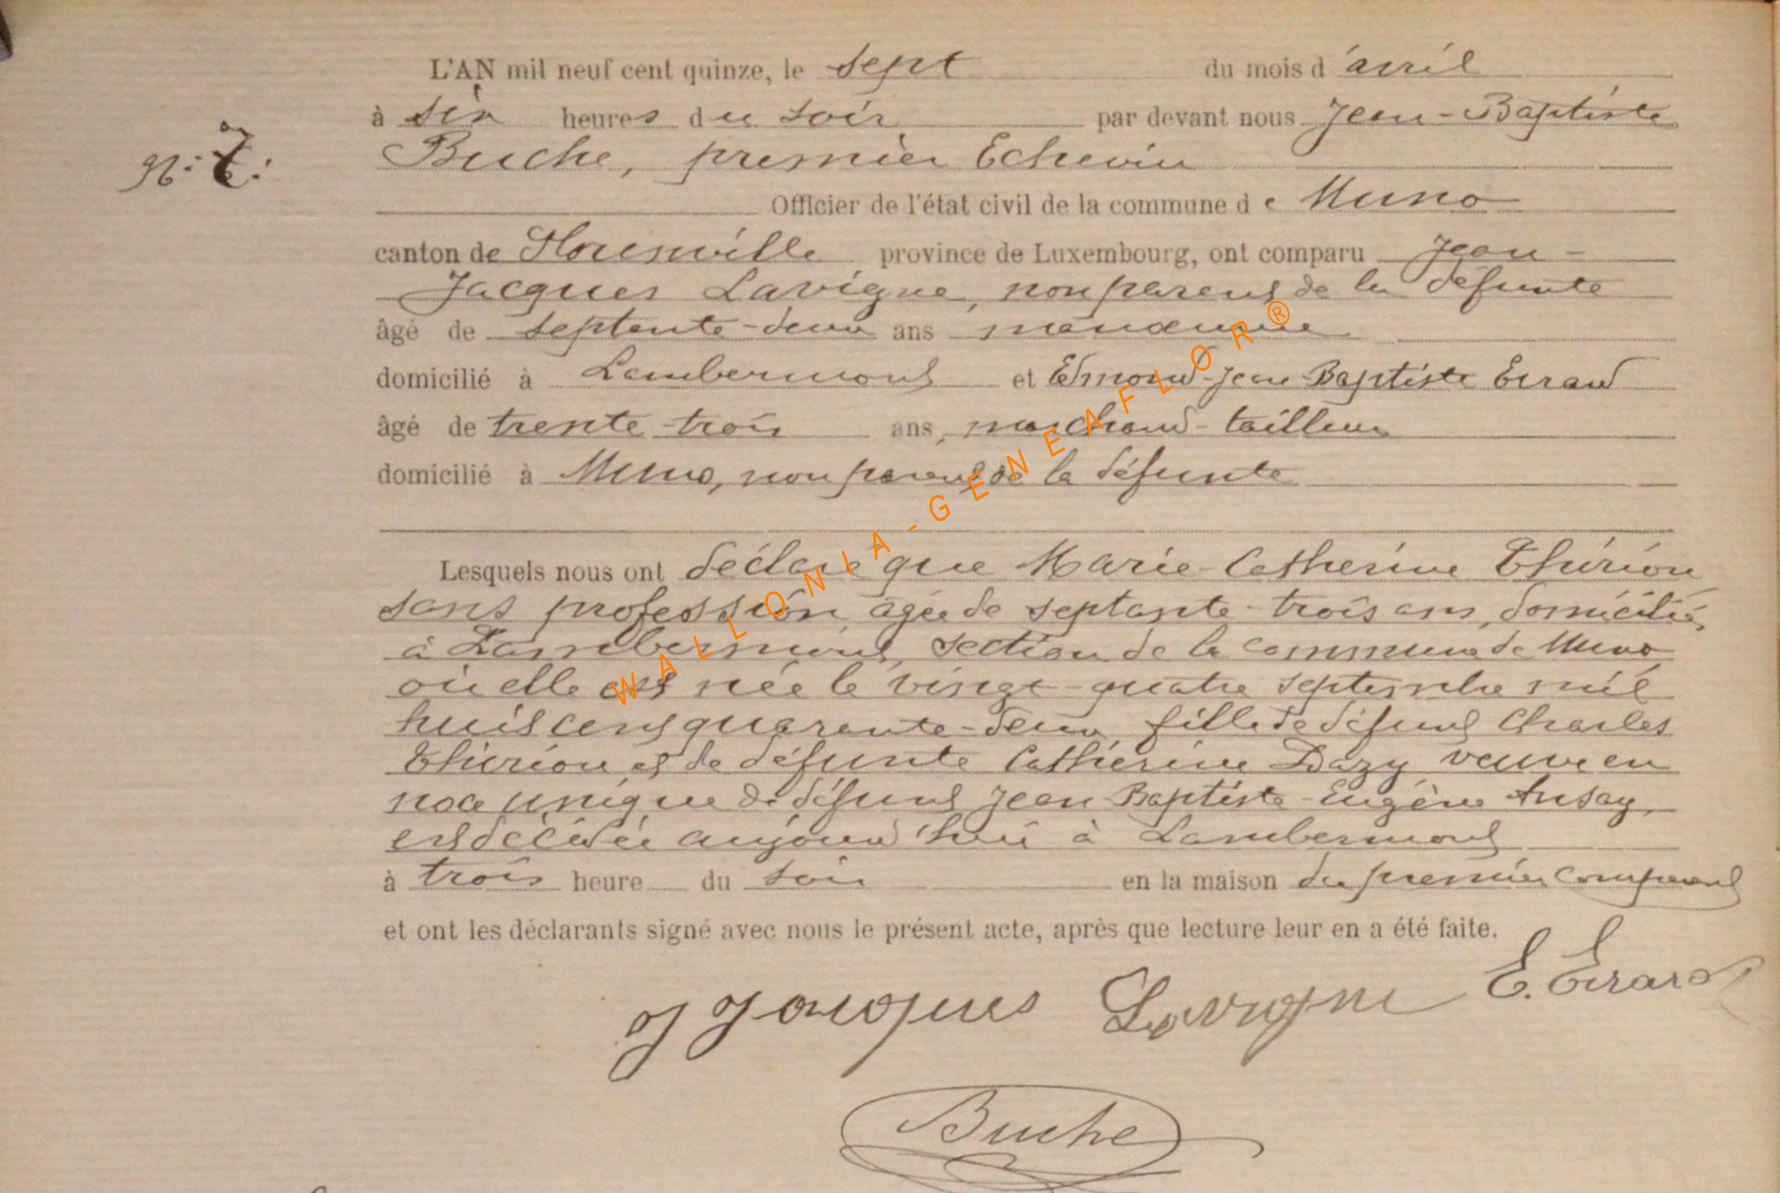 L'AN mil neuf cent quinze, le sept du mois d'avril
à six heures du soir par devant nous Jean-Baptiste
N: 7: Buche, premier Echevin
Officier de l'état civil de la commune de Muno
canton de Florenville province de Luxembourg, ont comparu Jean-
Jacques Lavigne, non parent de la défunte
âgé de septante-deux ans manœuvre
domicilié à Lambermont et Edmond-Jean-Baptiste Erard
âgé de trente-trois ans, marchand-tailleur
domicilié à Muno, non parent de la défunte
Lesquels nous ont déclaré que Marie-Catherine Thirion
sans profession, agée de septante-trois ans, domiciliée
à Lambermont, section de la commune de Muno
où elle est née le vingt quatre septembre mil
huit cent quarante-deux, fille de défunt Charles
Thirion et de défunte Catherine Dazy veuve en
noce unique de défunt Jean-Baptiste-Eugène Ansay,
est décédée aujourd'hui à Lambermont
à trois heure du soir en la maison du premier comparant
et ont les déclarants signé avec nous le présent acte, après que lecture leur en a été faite.
J Jacques Lavigne E. Erard
Buche
WALLONIA-GENEAFLOR®